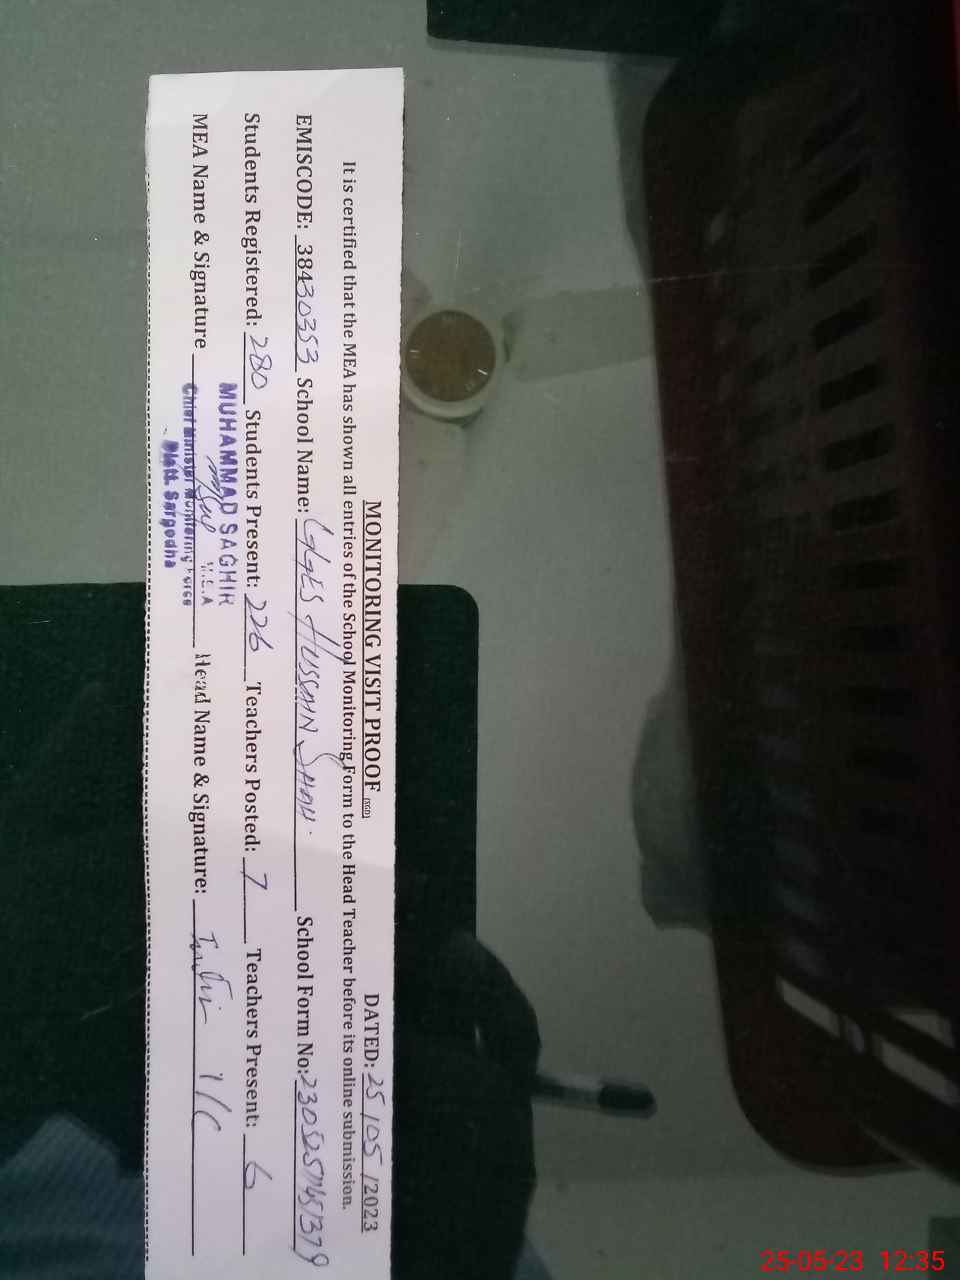 MONITORING VISIT PROOF (SGD) DATED: 25/05/2023
It is certified that the MEA has shown all entries of the School Monitoring Form to the Head Teacher before its online submission.
EMISCODE: 38430353 School Name: GGES HUSSAIN SHAH. School Form No: 23052511451379
Students Registered: 280 Students Present: 226 Teachers Posted: 7 Teachers Present: 6
MEA Name & Signature Head Name & Signature: I/C
MUHAMMAD SAGHIR
M.E.A
Chief Minister Monitoring Force
Distt. Sargodha
25-05-23 12:35